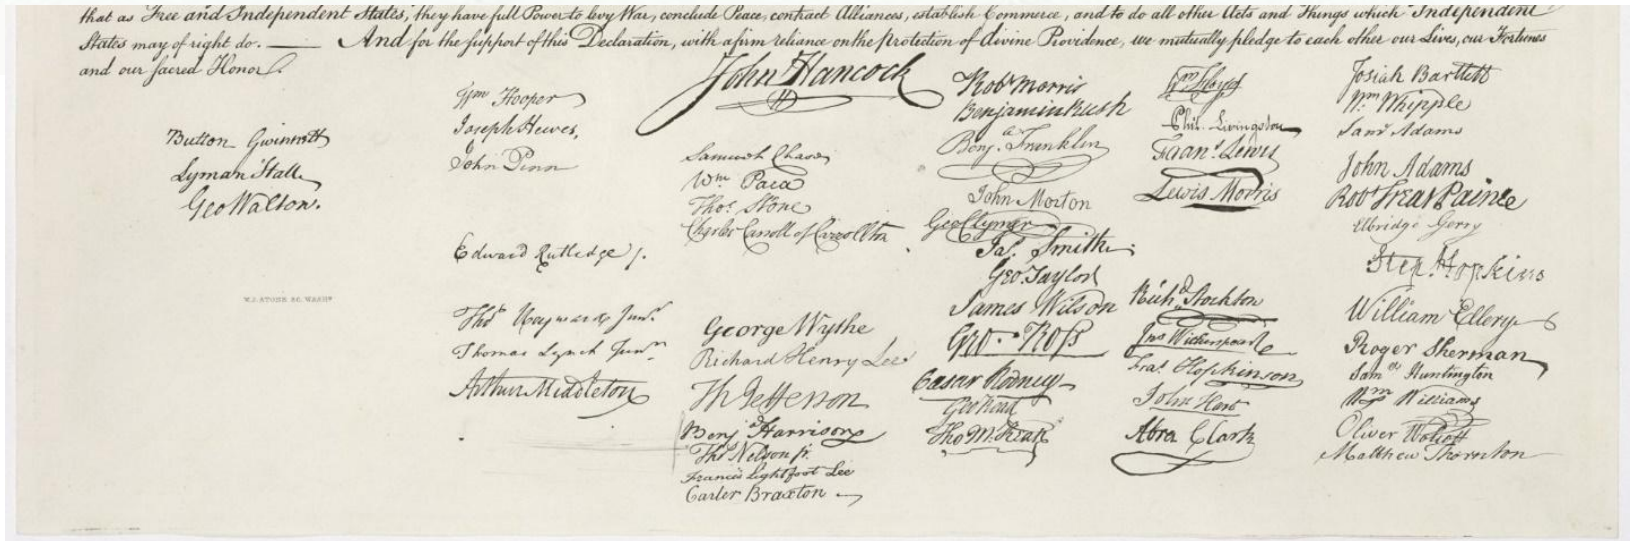 that as Free and Independent States, they have full Power to levy War, conclude Peace, contract Alliances, establish Commerce, and to do all other Acts and Things which Independent
States may of right do. — And for the support of this Declaration, with a firm reliance on the protection of divine Providence, we mutually pledge to each other our Lives, our Fortunes
and our sacred Honor.
Button Gwinnett
Lyman Hall
Geo Walton.
W.J. STONE SC. WASHN.
Wm Hooper
Joseph Hewes,
John Penn
Edward Rutledge /.
Thos Heyward Junr.
Thomas Lynch Junr.
Arthur Middleton
John Hancock
Samuel Chase
Wm Paca
Thos. Stone
Charles Carroll of Carrollton
George Wythe
Richard Henry Lee
Th Jefferson
Benj Harrison
Thos Nelson jr.
Francis Lightfoot Lee
Carter Braxton
Robt Morris
Benjamin Rush
Benja. Franklin
John Morton
Geo Clymer
Jas. Smith.
Geo. Taylor
James Wilson
Geo. Ross
Caesar Rodney
Geo Read
Tho M:Kean
Wm Floyd
Phil. Livingston
Frans. Lewis
Lewis Morris
Richd. Stockton
Jno Witherspoon
Fras. Hopkinson
John Hart
Abra Clark
Josiah Bartlett
Wm. Whipple
Saml Adams
John Adams
Robt Treat Paine
Elbridge Gerry
Step. Hopkins
William Ellery
Roger Sherman
Samel Huntington
Wm Williams
Oliver Wolcott
Matthew Thornton